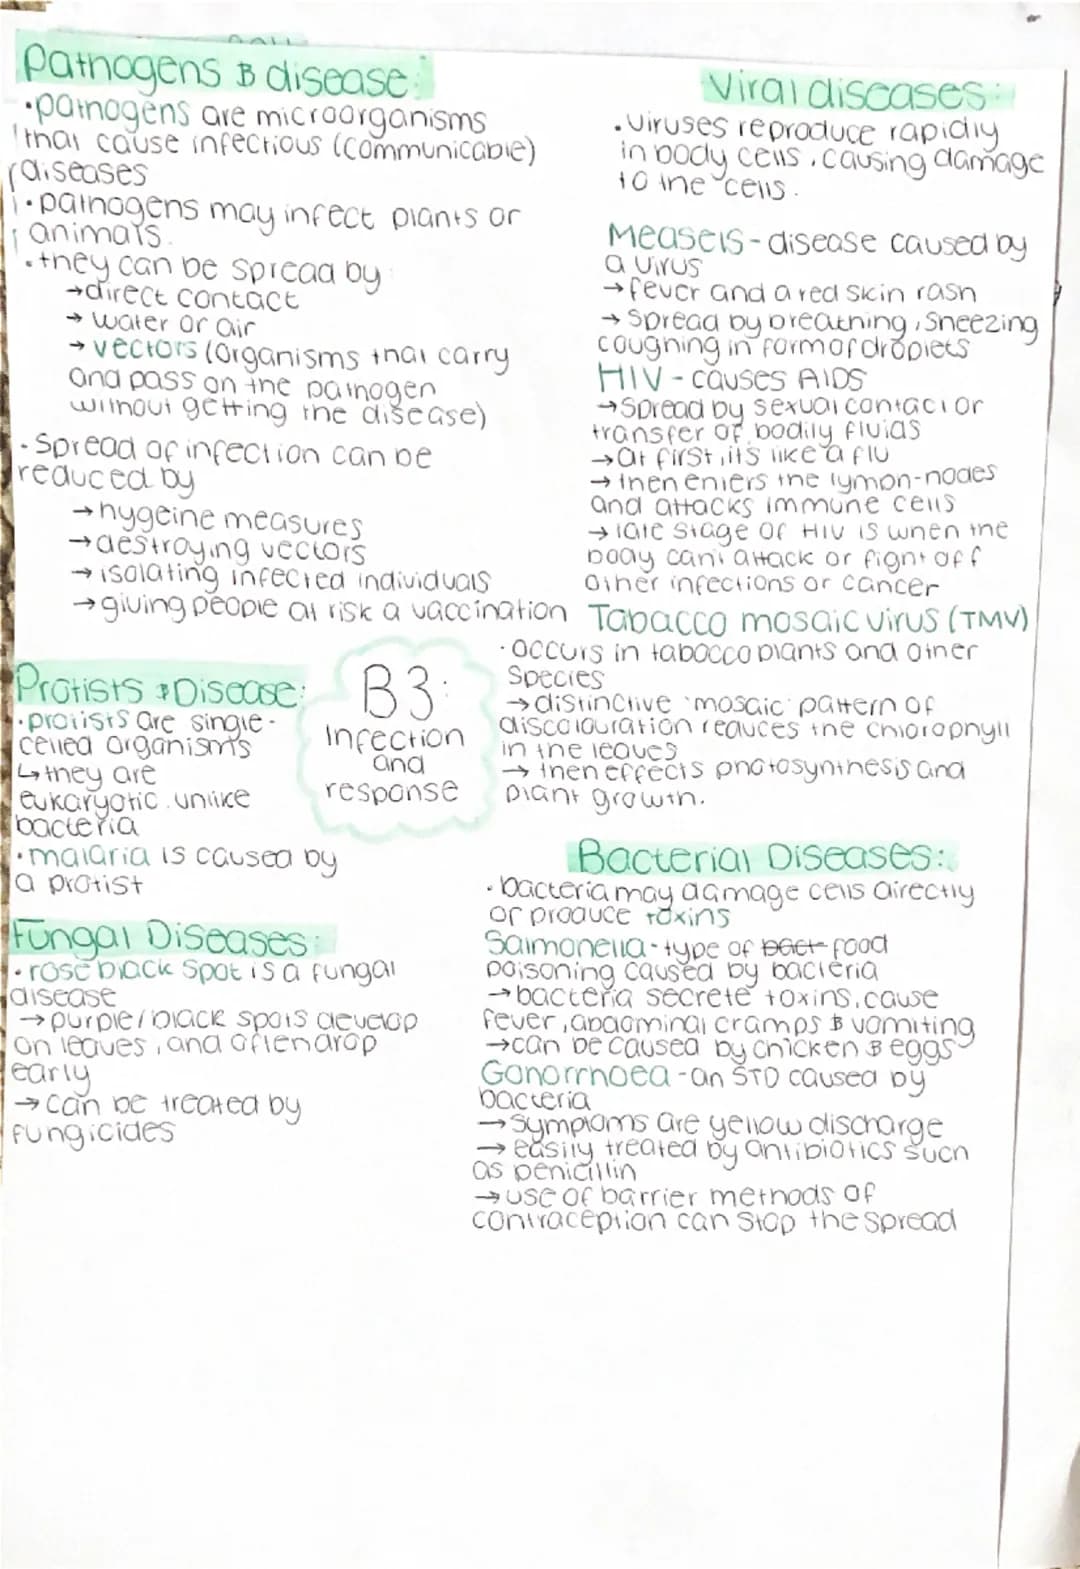 Pathogens & disease:
•pathogens are microorganisms
that cause infectious (communicable)
diseases
•pathogens may infect plants or
animals.
•they can be spread by
→direct contact
→ water or air
→ vectors (organisms that carry
and pass on the pathogen
without getting the disease)
•Spread of infection can be
reduced by
→hygeine measures
→destroying vectors
→isolating infected individuals
→giving people at risk a vaccination
Viral diseases:
•Viruses reproduce rapidly
in body cells, causing damage
to the cells.
Measels- disease caused by
a virus
→fever and a red skin rash
→ Spread by breathing, Sneezing
coughing in form of droplets
HIV - causes AIDS
→Spread by sexual contact or
transfer of bodily fluids
→at first, its like a flu
→ then enters the lymph-nodes
and attacks immune cells
→ late stage of HIV is when the
body cant attack or fight off
other infections or cancer
Tabacco mosaic virus (TMV)
•occurs in tabacco plants and other
Species
→distinctive 'mosaic' pattern of
discolouration reduces the chlorophyll
in the leaves
→ then effects photosynthesis and
plant growth.
B3:
Infection
and
response
Protists & Disease:
•protists are single-
celled organisms
↳they are
eukaryotic unlike
bacteria
•malaria is caused by
a protist
Fungal Diseases:
•rose black Spot is a fungal
disease
→purple/black spots develop
on leaves, and often drop
early
→ can be treated by
fungicides
Bacterial Diseases:
•bacteria may damage cells directly
or produce toxins
Salmonella-type of bact food
poisoning caused by bacteria
→bacteria secrete toxins, cause
fever, abdominal cramps & vomiting
→can be caused by chicken & eggs
Gonorrhoea-an STD caused by
bacteria
→symptoms are yellow discharge
→ easily treated by antibiotics such
as penicillin
→use of barrier methods of
contraception can stop the spread